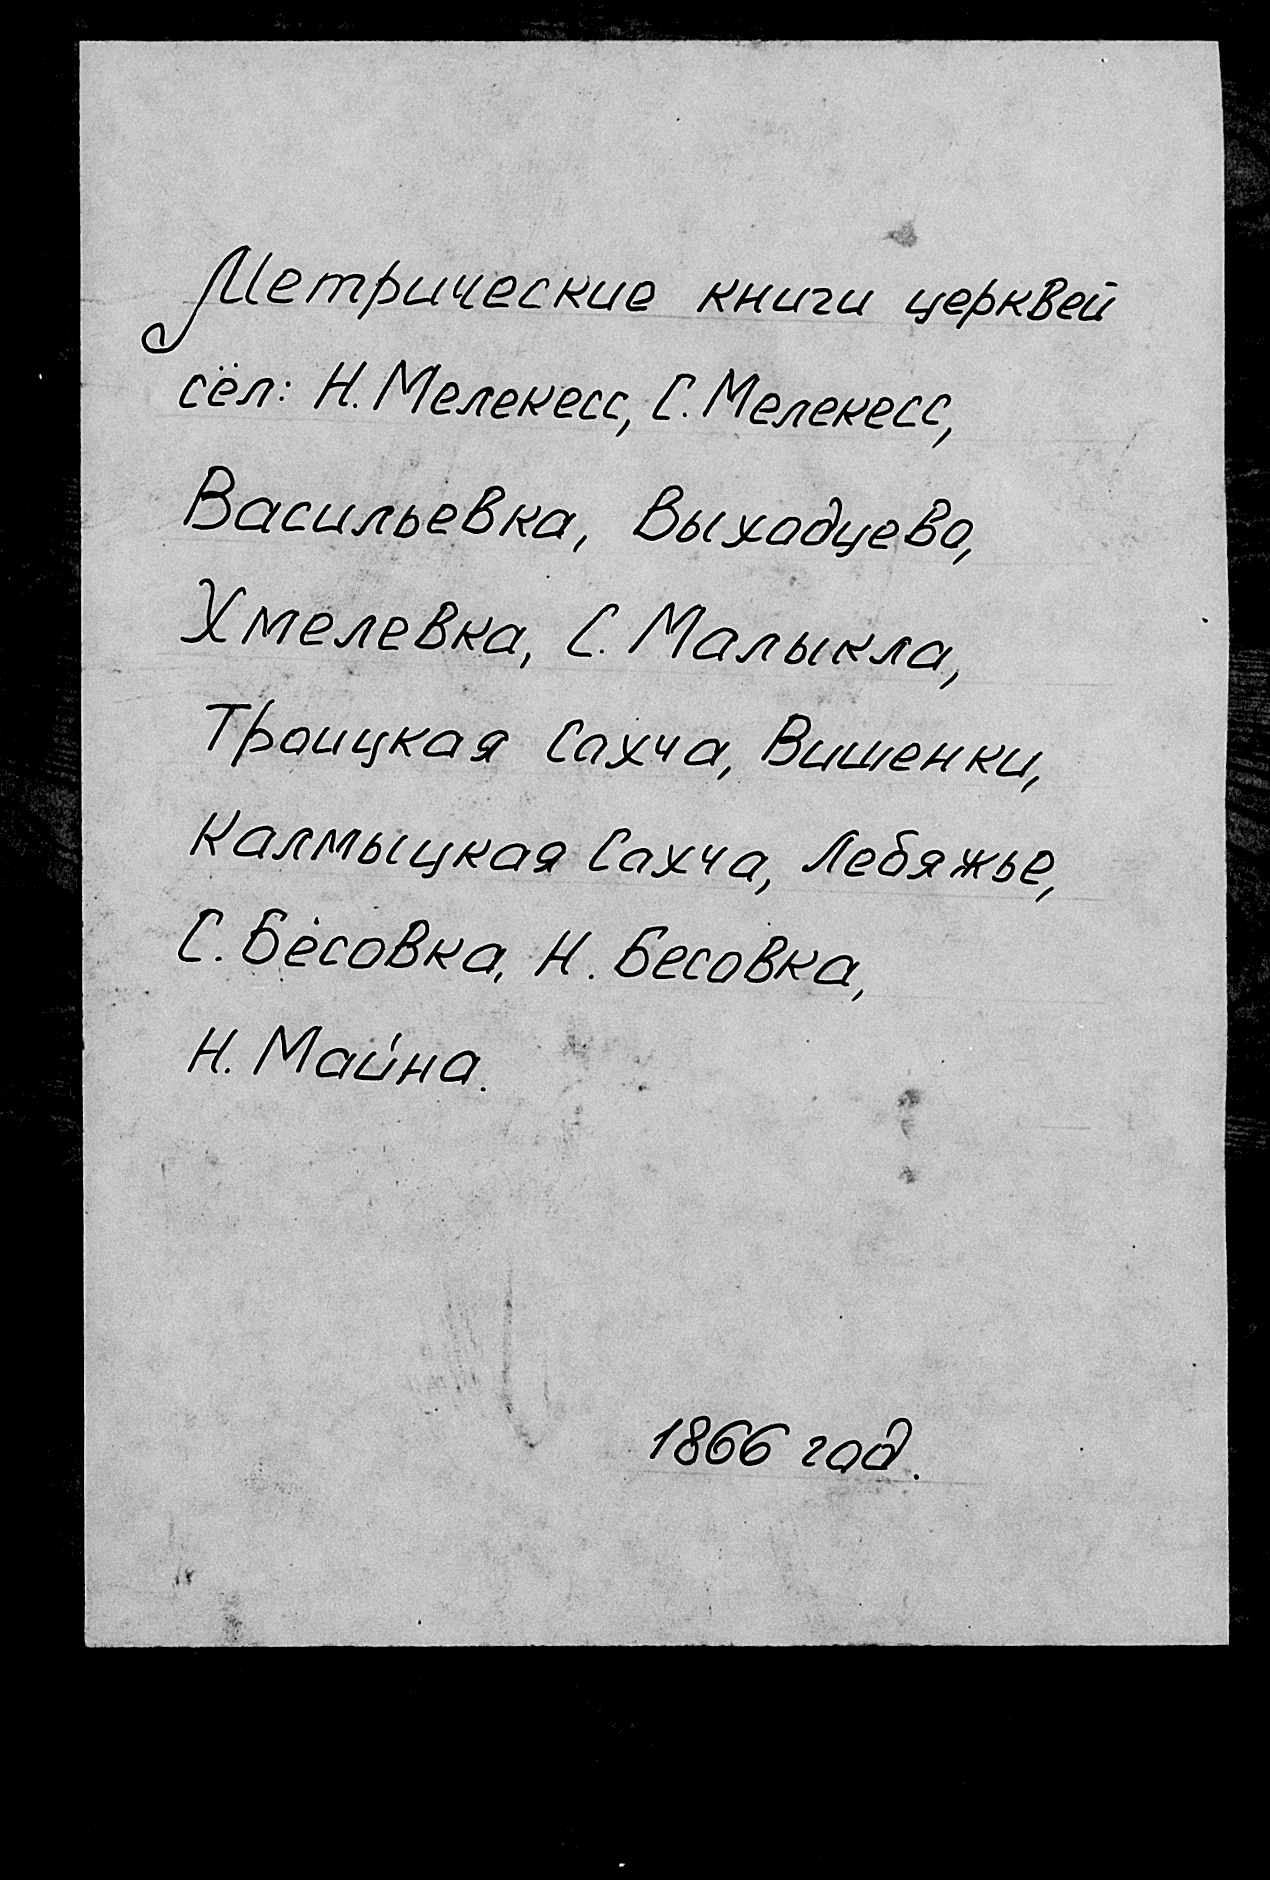 Метрические книги церквей
сёл: Н. Мелекесс, С. Мелекесс,
Васильевка, Выходцево,
Хмелевка, С. Малыкла,
Троицкая Сахча, Вишенки,
Калмыцкая Сахча, Лебяжье,
С. Бесовка, Н. Бесовка,
Н. Майна.
1866 год.